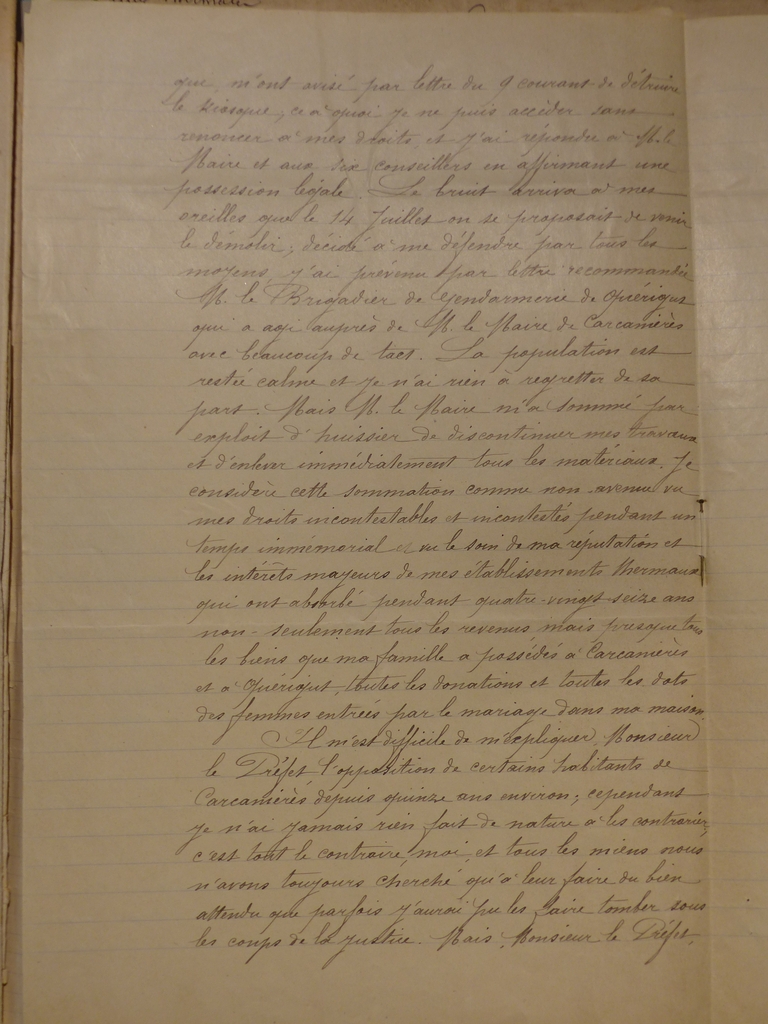 que, m'ont avisé par lettre du 9 courant de détruire
le Kiosque, ce à quoi je ne puis accéder sans
renoncer à mes droits, et j'ai répondu à M. le
Maire et aux six conseillers en affirmant une
possession légale. Le bruit arriva à mes
oreilles que le 14 Juillet on se proposait de venir
le démolir; décidé à me défendre par tous les
moyens, j'ai prévenu par lettre recommandée
M. le Brigadier de Gendarmerie de Quérigut
qui a agi auprès de M. le Maire de Carcanières
avec beaucoup de tact. La population est
restée calme et je n'ai rien à regretter de sa
part. Mais M. le Maire m'a sommé par
exploit d'huissier de discontinuer mes travaux
et d'enlever immédiatement tous les matériaux. Je
considère cette sommation comme non-avenue vu
mes droits incontestables et incontestés pendant un
temps immémorial et vu le soin de ma réputation et
les intérêts majeurs de mes établissements thermaux
qui ont absorbé pendant quatre-vingt seize ans
non-seulement tous les revenus mais presque tous
les biens que ma famille a possédés à Carcanières
et à Quérigut, toutes les donations et toutes les dots
des femmes entrées par le mariage dans ma maison.
Il m'est difficile de m'expliquer, Monsieur
le Préfet l'opposition de certains habitants de
Carcanières depuis quinze ans environ; cependant
je n'ai jamais rien fait de nature à les contrarier,
c'est tout le contraire, moi, et tous les miens nous
n'avons toujours cherché qu'à leur faire du bien
attendu que parfois j'aurai pu les faire tomber sous
les coups de la justice. Mais, Monsieur le Préfet,